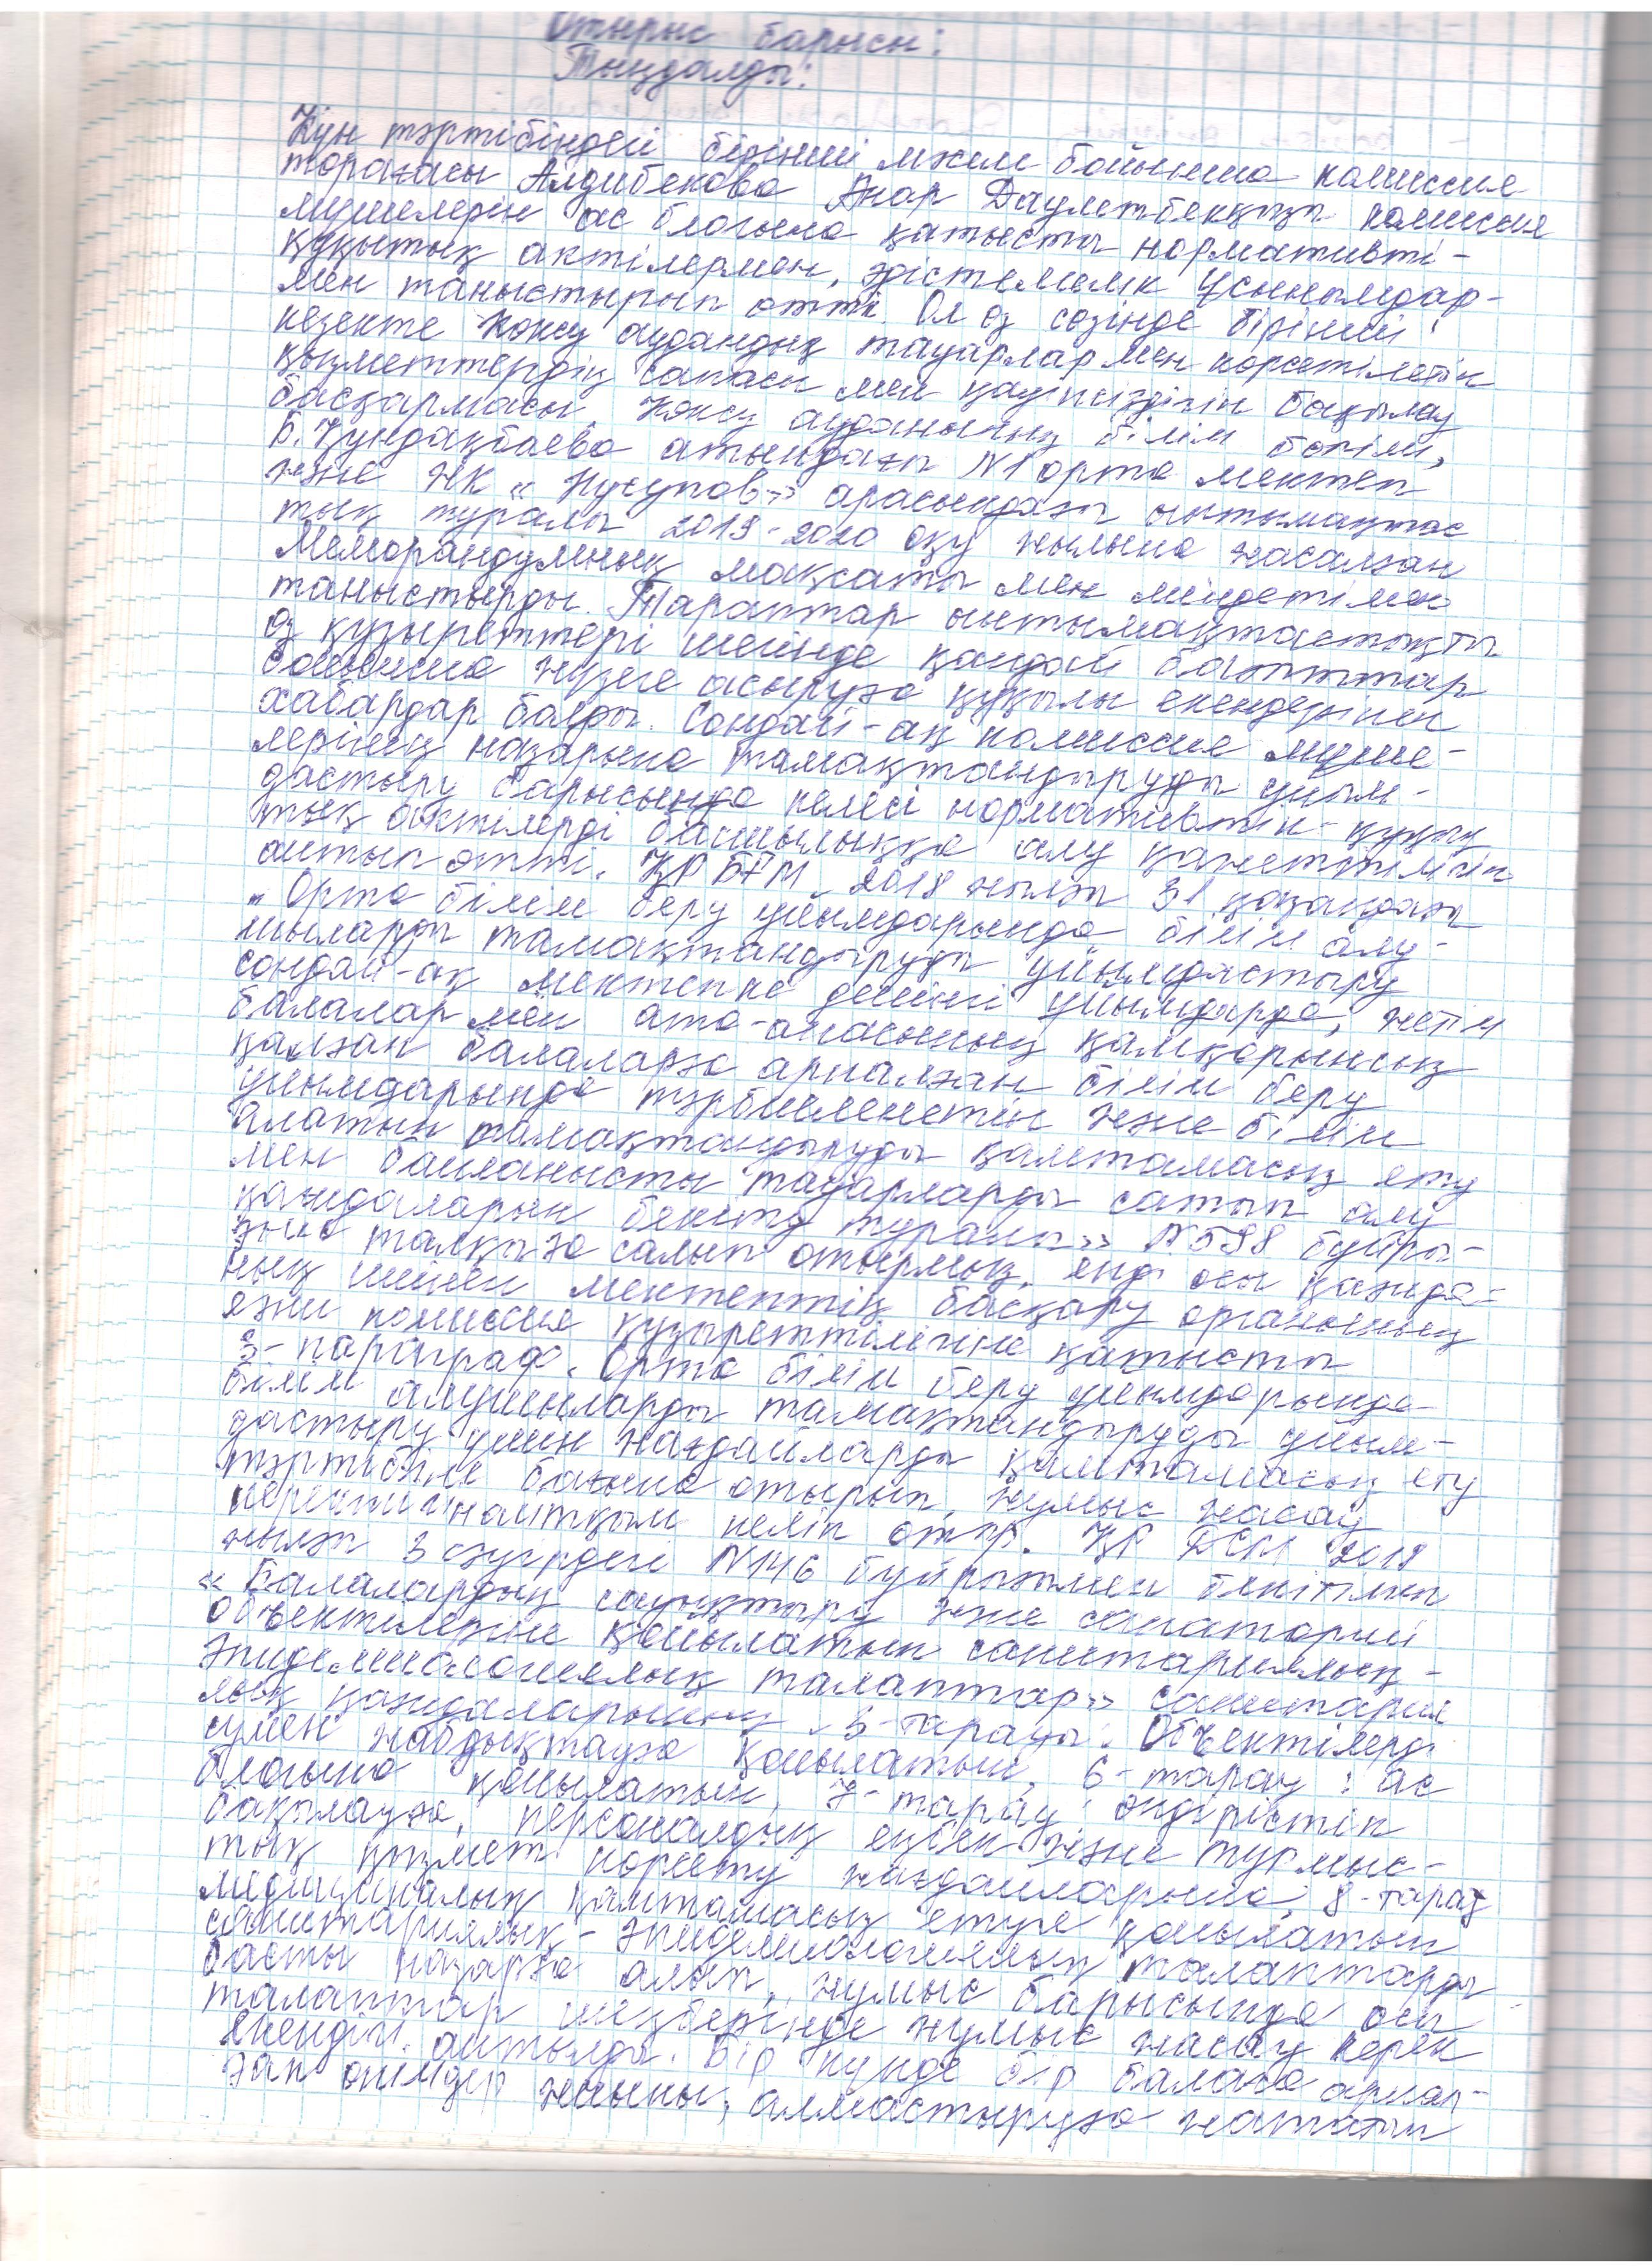 Отырыс барысы:
Тыңдалды:
Күн тәртібіндегі бірінші мәселе бойынша комиссия
төрағасы Алдибекова Анар Даулетбекқызы комиссия
мүшелерін ас блогына қатысты нормативті-
құқықтық актілермен, әдістемелік ұсынымдар-
мен таныстырып өтті. Ол өз сөзінде бірінші
кезекте Көксу аудандық тауарлар мен көрсетілетін
қызметтердің сапасы мен қауіпсіздігін бақылау
басқармасы, Көксу ауданының білім бөлімі,
Б. Құндақбаева атындағы №1 орта мектеп
және ЖК «Нусупов» арасындағы ынтымақтас
тық туралы 2019-2020 оқу жылына жасалған
Меморандумның мақсаты мен міндетімен
таныстырды. Тараптар ынтымақтастықты
өз құзыреттері шегінде қандай бағыттар
бойынша жүзеге асыруға құқылы екендігінен
хабардар болды. Сондай-ақ комиссия мүше-
лерінің назарына тамақтандыруды ұйым-
дастыру барысында келесі нормативтік-құқық
тық актілерді басшылыққа алу қажеттілігін
айтып өтті. ҚР БҒМ 2018 жылғы 31 қазандағы
"Орта білім беру ұйымдарында білім алу-
шыларды тамақтандыруды ұйымдастыру
сондай-ақ мектепке дейінгі ұйымдарда, жетім
балалар мен ата-анасының қамқорынсыз
қалған балаларға арналған білім беру
ұйымдарында тәрбиеленетін және білім
алатын тамақтандыруды қамтамасыз ету
мен байланысты тауарларды сатып алу
қағидаларын бекіту туралы» №598 бұйры-
ғына талқыға салып отырмыз, енді осы қағида-
ның ішінен мектептің басқару органының
яғни комиссия құзыреттілігіне қатысты
3-параграф. Орта білім беру ұйымдарында
білім алушыларды тамақтандыруды ұйым-
дастыру үшін жағдайларды қамтамасыз ету
тәртібіне бағына отырып, жұмыс жасау
керектігін айтқым келіп отыр. ҚР ДСМ 2018
жылғы 3 сәуірдегі №146 бұйрығымен бекітілген
«Балаларды сауықтыру және санаторий
объектілеріне қойылатын санитариялық-
эпидемиологиялық талаптар» санитария
лық қағидаларының 3-тарауы: Объектілерді
сумен жабдықтауға қойылатын, 6-тарау: ас
блогына қойылатын, 7-тарау: өндірістік
бақылауға, персоналдың еңбек және тұрмыс-
тық қызмет көрсету жағдайларына, 8-тарау
медициналық қамтамасыз етуге қойылатын
санитариялық-эпидемиологиялық талаптарды
басты назарға алып, жұмыс барысында осы
талаптар шеңберінде жұмыс жасау керек
екендігі айтылды. Бір күнде бір балаға арнал-
ған өнімдер жиыны, алмастыруға жататын